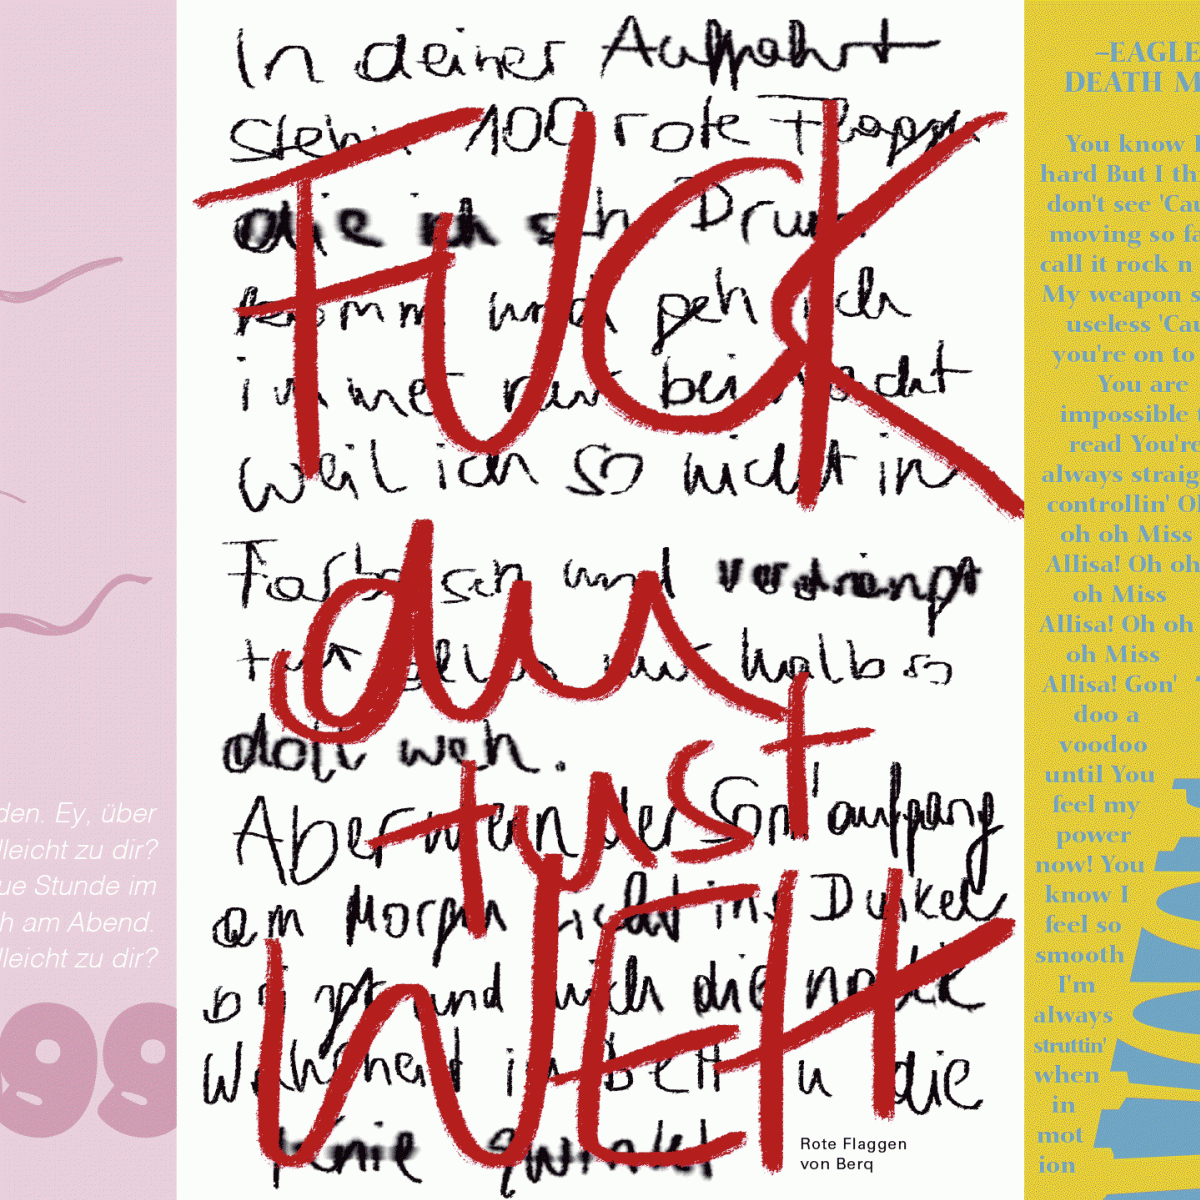 den. Ey, über
lleicht zu dir?
ue Stunde im
h am Abend.
lleicht zu dir?
99
In deiner Auffahrt
stehn 100 rote Flaggen
die ich sch Drum
komm und geh ich
immer nur bei Nacht
weil ich so nicht in
Farbe seh und verdrängt
tut alles nur halb so
doll weh.
Aber wenn der Sonn'aufgang
am Morgen Licht ins Dunkel
bringt und mich die nackte
Wahrheit im Bett u die
Knie zwinkt
FUCK
du
tust
WEH
Rote Flaggen
von Berq
–EAGLE
DEATH M
You know I
hard But I thi
don't see 'Cau
moving so fa
call it rock n
My weapon s
useless 'Cau
you're on to
You are
impossible t
read You're
always straig
controllin' Oh
oh oh Miss
Allisa! Oh oh
oh Miss
Allisa! Oh oh
oh Miss
Allisa! Gon'
doo a
voodoo
until You
feel my
power
now! You
know I
feel so
smooth
I'm
always
struttin'
when
in
mot
ion